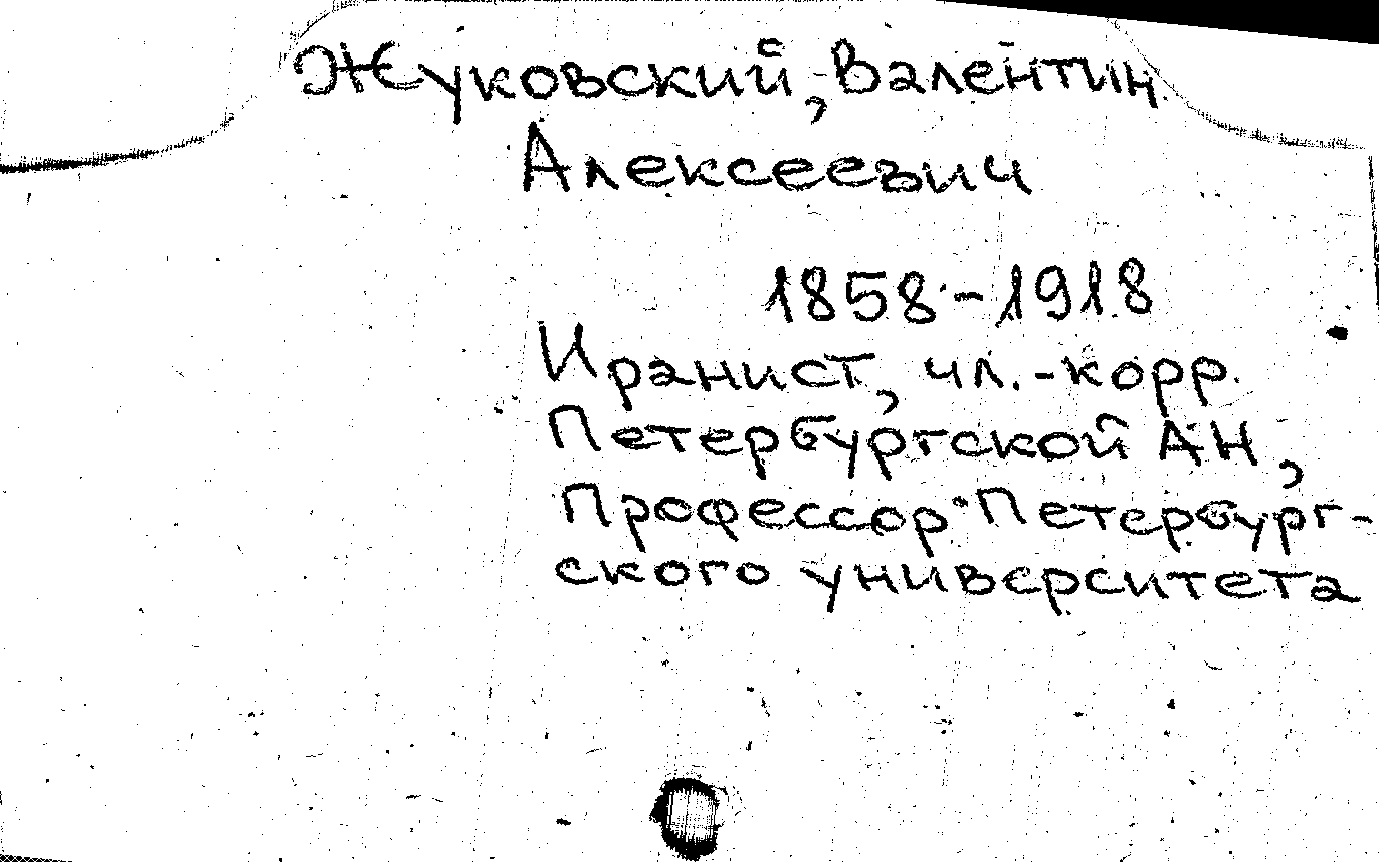 Жуковский, Валентин
Алексеевич
1858-1918
Иранист, чл.-корр.
Петербургской АН,
Профессор Петербург-
ского университета